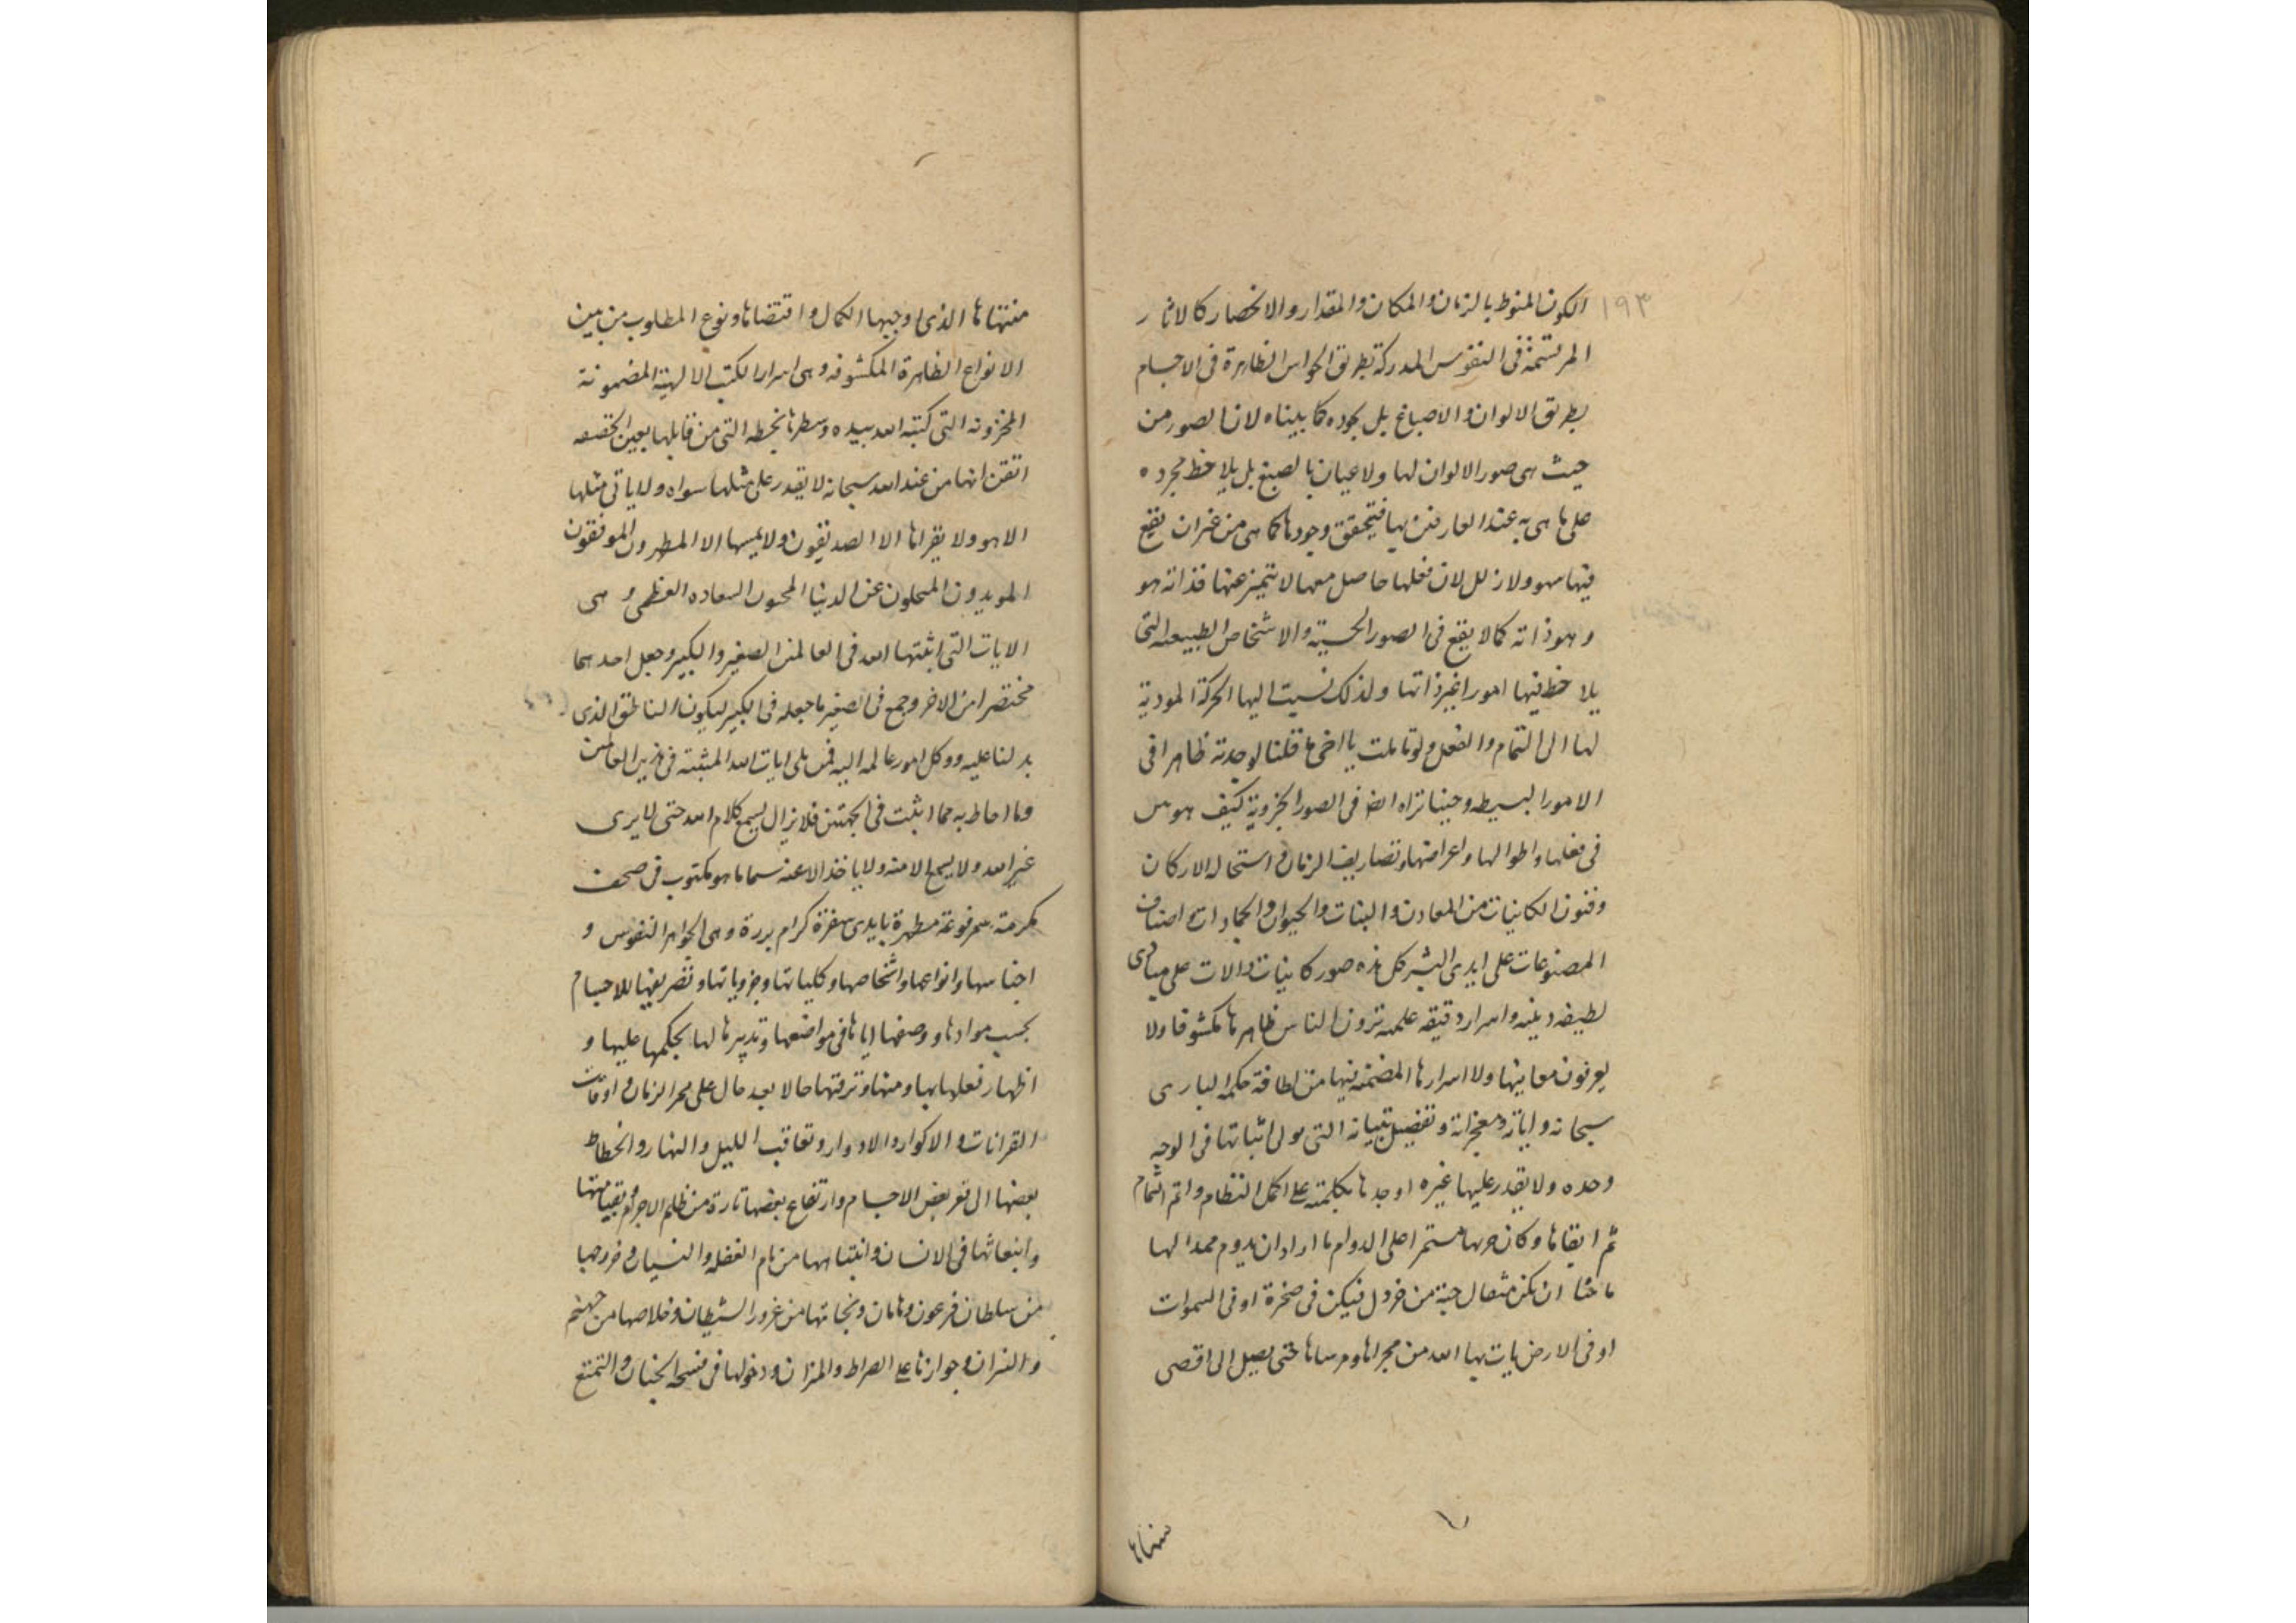 ١٩٣
الكون المنوط بالزمان والمكان والمقدار والانحصار كالاثار
المرتسمة فى النفوس المدركة بطريق الحواس الظاهرة فى الاجسام
بطريق الالوان والاصباغ بل مجرده كما بيناه لانا نصور من
حيث هى صور الالوان لها ولا عيان بالصبغ بل يلاحظ مجرده
على ما هى به عند العارفين بها فيتحقق وجودها كما هى من غير ان يقع
فيها سهو ولا زلل لان فعلها حاصل معها لا يتميز عنها فذاته هو
وهو ذاته كما لا يقع فى الصور الحسية والاشخاص الطبيعه التى
يلاحظ فيها امورا غير ذاتها ولذلك نسبت اليها الحركة المودية
لها الى التمام والفعل ولو تاملت يا اخى ما قلنا لوجدته ظاهرا فى
الامور البسيطه وحينا تراه ايض فى الصور الجزوية كيف هو
فى فعلها واطوالها واعراضها وتصاريف الزمان و استحاله الاركان
وفنون الكاينات من المعادن والنبات والحيوان والجمادات واصناف
المصنوعات على ايدى البشر كل هذه صور كاينات والات على مبادى
لطيفه دينيه واسرار دقيقه علميه ترون الناس ظاهرها مكشوفا ولا
يعرفون معاينها ولا اسرارها المضمنه فيها من لطافة حكمه البارى
سبحانه واياته ومعجزاته وتفضيل بتيانه التى مولى اثباتها فى الوجه
وحده ولا يقدر عليها غيره اوجدها بكلمته على اكمل النظام واتم التمام
ثم ابقاها وكان جريها مستمرا على الدوام ما اراد ان يدوم ممدا لها
ما شا ان تكن مثقال حبة من خردل فتكن فى صخرة او فى السموات
او فى الارض يات بها الله من مجراها ومرساها حتى يصل الى اقصى
منتهاها
منتهاها الذى اوجبها الكمال واقتضاها ونوع المطلوب من بين
الانواع الظاهرة المكشوفه وهى اسرار الكتب الالهية المضمونة
المخزونه التى كتبه الله بيده وسطرها بخطه التى من قابلها بعين الحقيقه
اتقن انها من عند الله سبحانه لا يقدر على مثلها سواه ولا ياتى مثلها
الا هو ولا يقراها الا الصديقون ولا يمسها الا المطهرون الموفقون
المويدون المتخلون عن الدنيا المحبون السعاده العظمى و هى
الايات التى اثبتها الله فى العالمين الصغير والكبير وجعل احدهما
مختصرا من الاخر وجمع فى الصغير ما جعله فى الكبير ليكون الناطق الذى
يدلنا عليه ووكل امور عالمه اليه فمن تلى ايات الله المثبته فى هذين العالمين
وما احاط به مما اثبت فى الجهتين فلا يزال يسمع كلام الله حتى لا يرى
غير الله ولا يسمع الا منه ولا ياخذ الا عنه سيما ما هو مكتوب فى صحف
مكرمة مرفوعة مطهرة بايدى سفرة كرام بررة وهى الجواهر النفوس و
اجناسها وانواعها واشخاصها وكلياتها وجزوياتها وتصريفها للاجسام
بحسب موادها ووصفها اياها فى مواضعها وتدبيرها لها بحكمها عليها و
اظهار فعلها بها ومنها وترقتها حالا بعد حال على ممر الزمان و اوقات
القرانات والاكوار والادوار وتعاقب الليل والنهار وانحطاط
بعضها الى قعر بعض الاجسام وارتفاع بعضها تارة من ظلم الاجرام وقيامتها
وانبعاثها فى الانسان وانتباهها من نام الغفله والنسيان و خروجها
من سلطان فرعون وهامان ونجاتها من غرور الشيطان وخلاصها من جهنم
والنيران وجوازها على الصراط والميزان ودخولها فى فسحه الجنان والتمتع